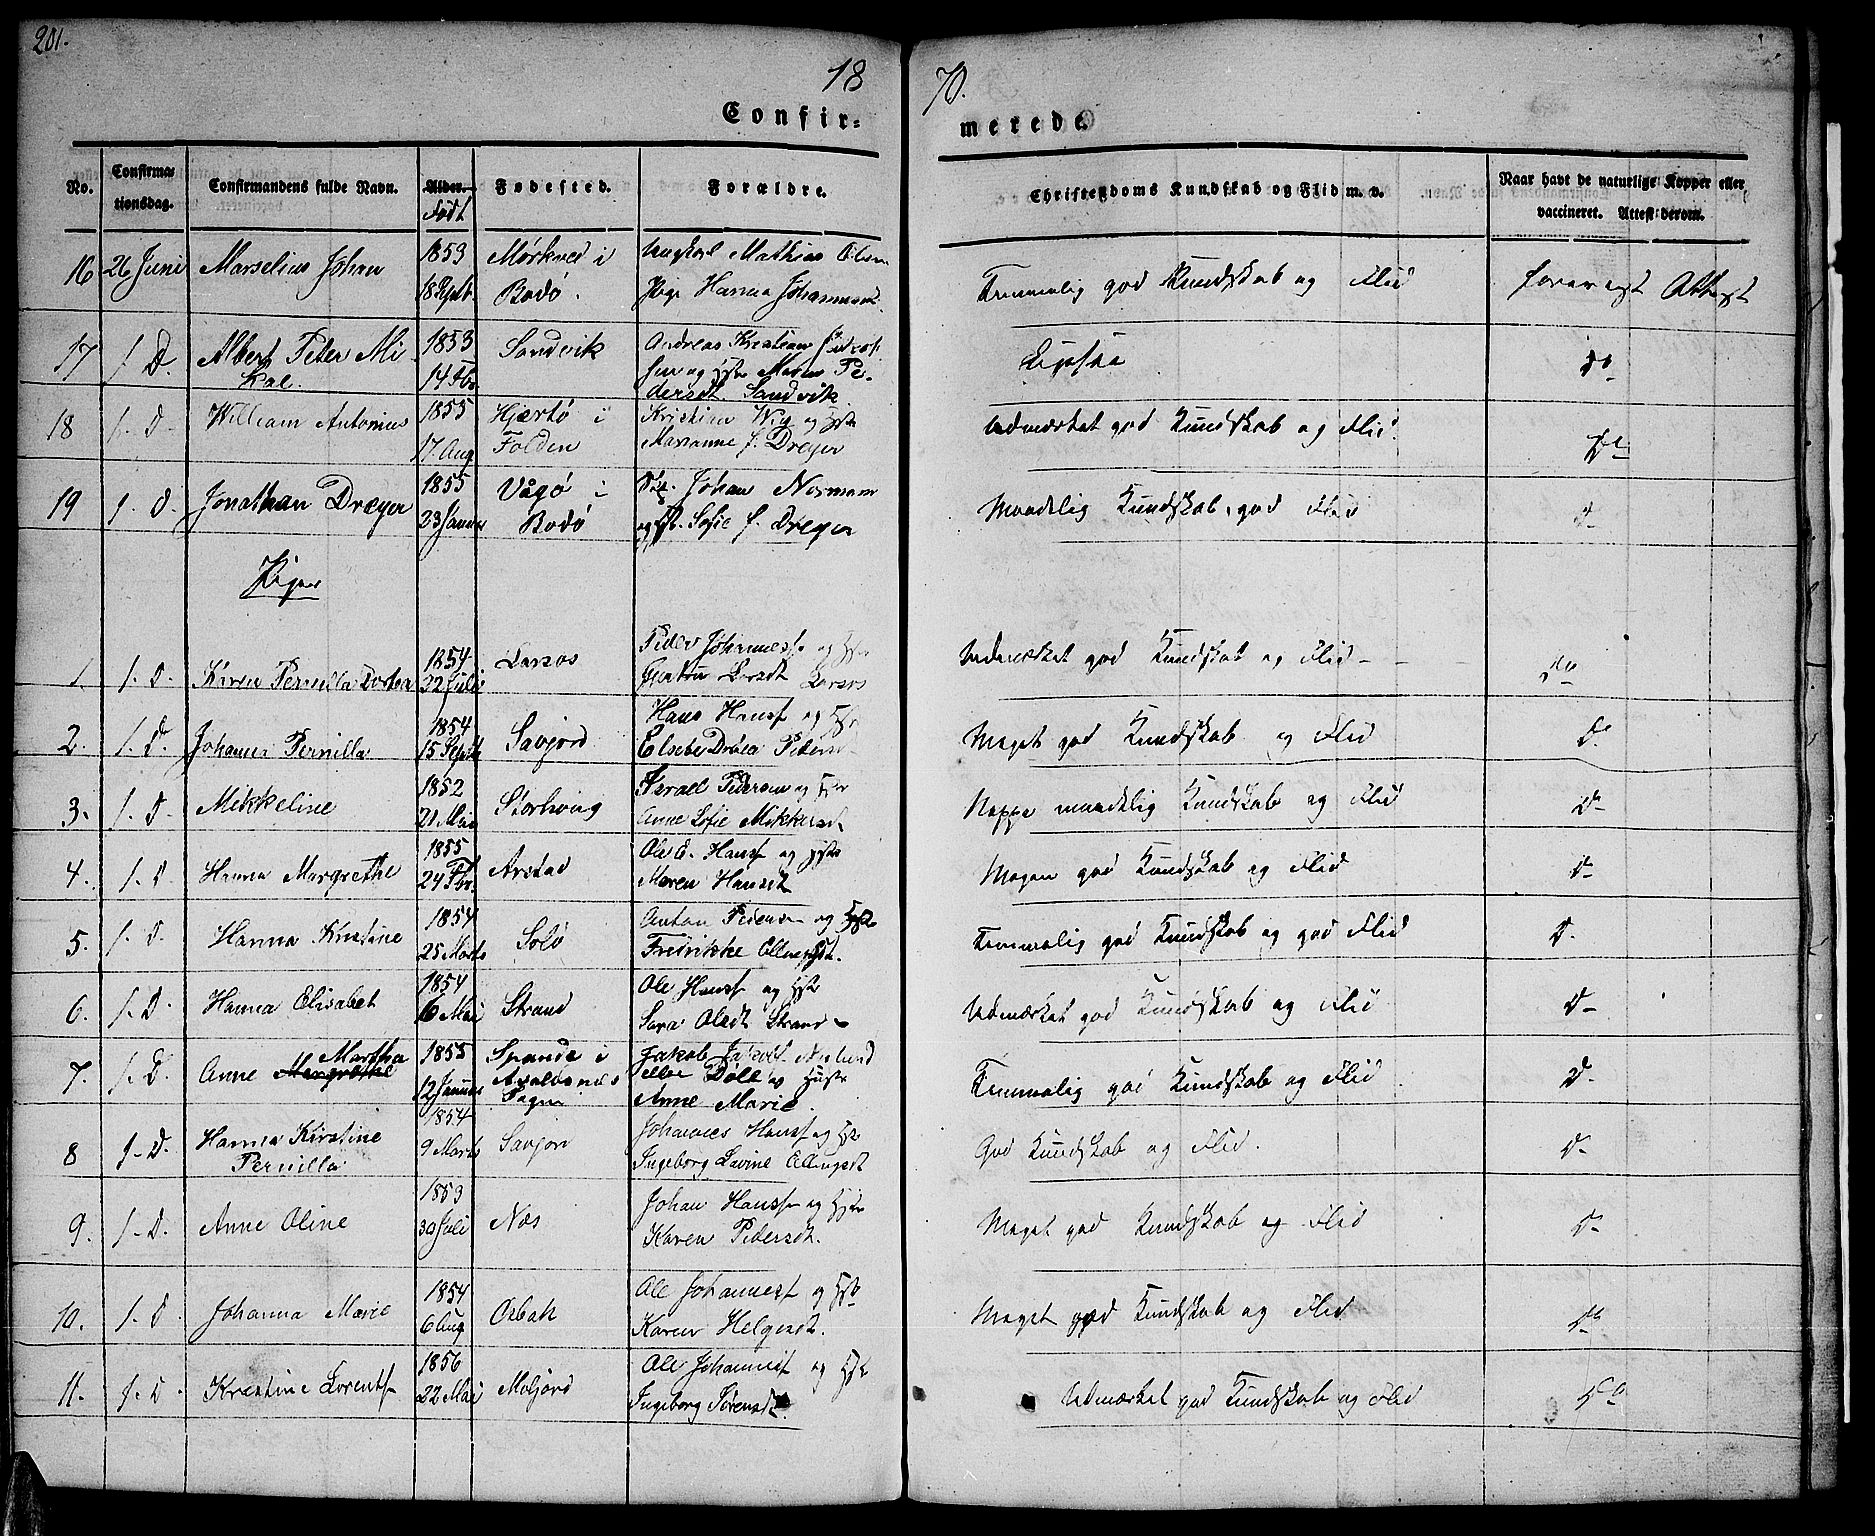 201.
18 70.
Confir- merede
No. Confirmationsdag. Confirmandens fulde Navn. Alder. Født Fødested. Forældre. Christendoms Kundskab og Flid m.v. Naar havt de naturlige Kopper eller vaccineret. Attest derom.
16 26 Juni Marselius Johan 1853 18 Septb. Mørkved i Bodø. Ungkarl Mathias Olsen Pige Hanna Johannesd. Temmelig god Kundskab og Flid forevist Attest
17 s. D. Albert Peter Mikal. 1853 14 Fbr Sandvik Andreas Kristian og Hstr Maren Pedersdt Sandvik Ligesaa Do
18 s. D. William Antonius 1855 17 Aug Hjærtø i Folden Kristian Wig og Hstr Marianne f. Dreyer Udmærket god Kundskab og Flid. Do
19 s. D. Jonathan Dreyer 1855 23 Januar Vågø i Bodø Johan Normann og Hst. Sofie f. Dreyer Maadelig Kundskab, god Flid D-
Piger
1. s. D. Karen Pernilla Dortea 1854 22 Juli Larsos Peder Johanness. og Hstr Gjertru Larsdt Larsos Udmærket god Kundskab og Flid - Do
2. s. D. Johanna Pernilla 1854 15 Septb Savjord Hans Hanss og Hstr Elsebe Dorea Pedersdt Meget god Kundskab og Flid Do
3. s. D. Mikkeline 1852 21 Mai Storhoug Israel Pedersen og Hstr Anne Sofie Mikkelsdt Neppe maadelig Kundskab og Flid D-
4. s. D. Hanna Margrethe 1855 24 Fbr. Arstad Ole E. Hanss og Hstr Maren Hansdt Megen god Kundskab og Flid D-
5. s. D. Hanna Kristine 1854 25 Marts Solø Anton Pedersen og Hstr Fredrikke Ellingsdt. Temmelig god Kundskab og god Flid D.
6. s. D. Hanna Elisabet 1854 16 Mai Strand Ole Hanss og Hstr Sara Olsdt Strand Udmærket god Kundskab og Flid D-
7. s. D. Anne Margrethe Martha 1855 12 Januar Spande i Axeldsnes Sogn Jakob Jakobs. eller Døll og Hustr Anne Marie. Temmelig god Kundskab og Flid D.
8 s. D. Hanna Kirstine Pernilla 1854 9 Marts Savjord Johannes Hanss og Hstr Ingeborg Lavine Ellingsdt God Kundskab og Flid. D-
9. s. D. Anne Oline 1853 30 Juli Næs Johan Hanss og Hstr Karen Pedersdt. Meget god Kundskab og Flid D-
10. s. D. Johanna Marie 1854 6 Aug Osbak Ole Johanness og Hstr Karen Helgesdt. Meget god Kundskab og Flid Do
11. s. D. Krestine Lorents 1856 22 Mai Moljord Ole Johanness og Hstr Ingeborg Sørensdt. Udmærket god Kundskab og Flid Do